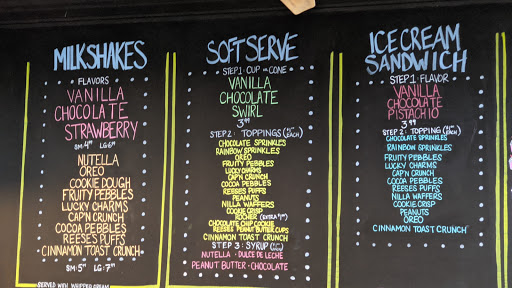 MILKSHAKES
FLAVORS
VANILLA
CHOCOLATE
STRAWBERRY
NUTELLA
OREO
COOKIE DOUGH
FRUITY PEBBLES
LUCKY CHARMS
CAP'N CRUNCH
COCOA PEBBLES
REESES PUFFS
CINNAMON TOAST CRUNCH
SERVED WITH WHIPPED CREAM
SOFT SERVE
STEP 1: CUP OR CONE
VANILLA
CHOCOLATE
SWIRL
3.99
STEP 2: TOPPINGS
CHOCOLATE SPRINKLES
RAINBOW SPRINKLES
OREO
FRUITY PEBBLES
LUCKY CHARMS
CAP'N CRUNCH
COCOA PEBBLES
REESES PUFFS
PEANUTS
NILLA WAFFERS
COOKIE CRISP
CHOCOLATE CHIP COOKIE
REESES PEANUT BUTTER CUPS
CINNAMON TOAST CRUNCH
STEP 3: SYRUP
NUTELLA · DULCE DE LECHE
PEANUT BUTTER · CHOCOLATE
ICE CREAM
SANDWICH
STEP 1: FLAVOR
VANILLA
CHOCOLATE
PISTACHIO
3.99
STEP 2: TOPPING
CHOCOLATE SPRINKLES
RAINBOW SPRINKLES
FRUITY PEBBLES
LUCKY CHARMS
CAP'N CRUNCH
COCOA PEBBLES
REESES PUFFS
NILLA WAFFERS
COOKIE CRISP
PEANUTS
OREO
CINNAMON TOAST CRUNCH